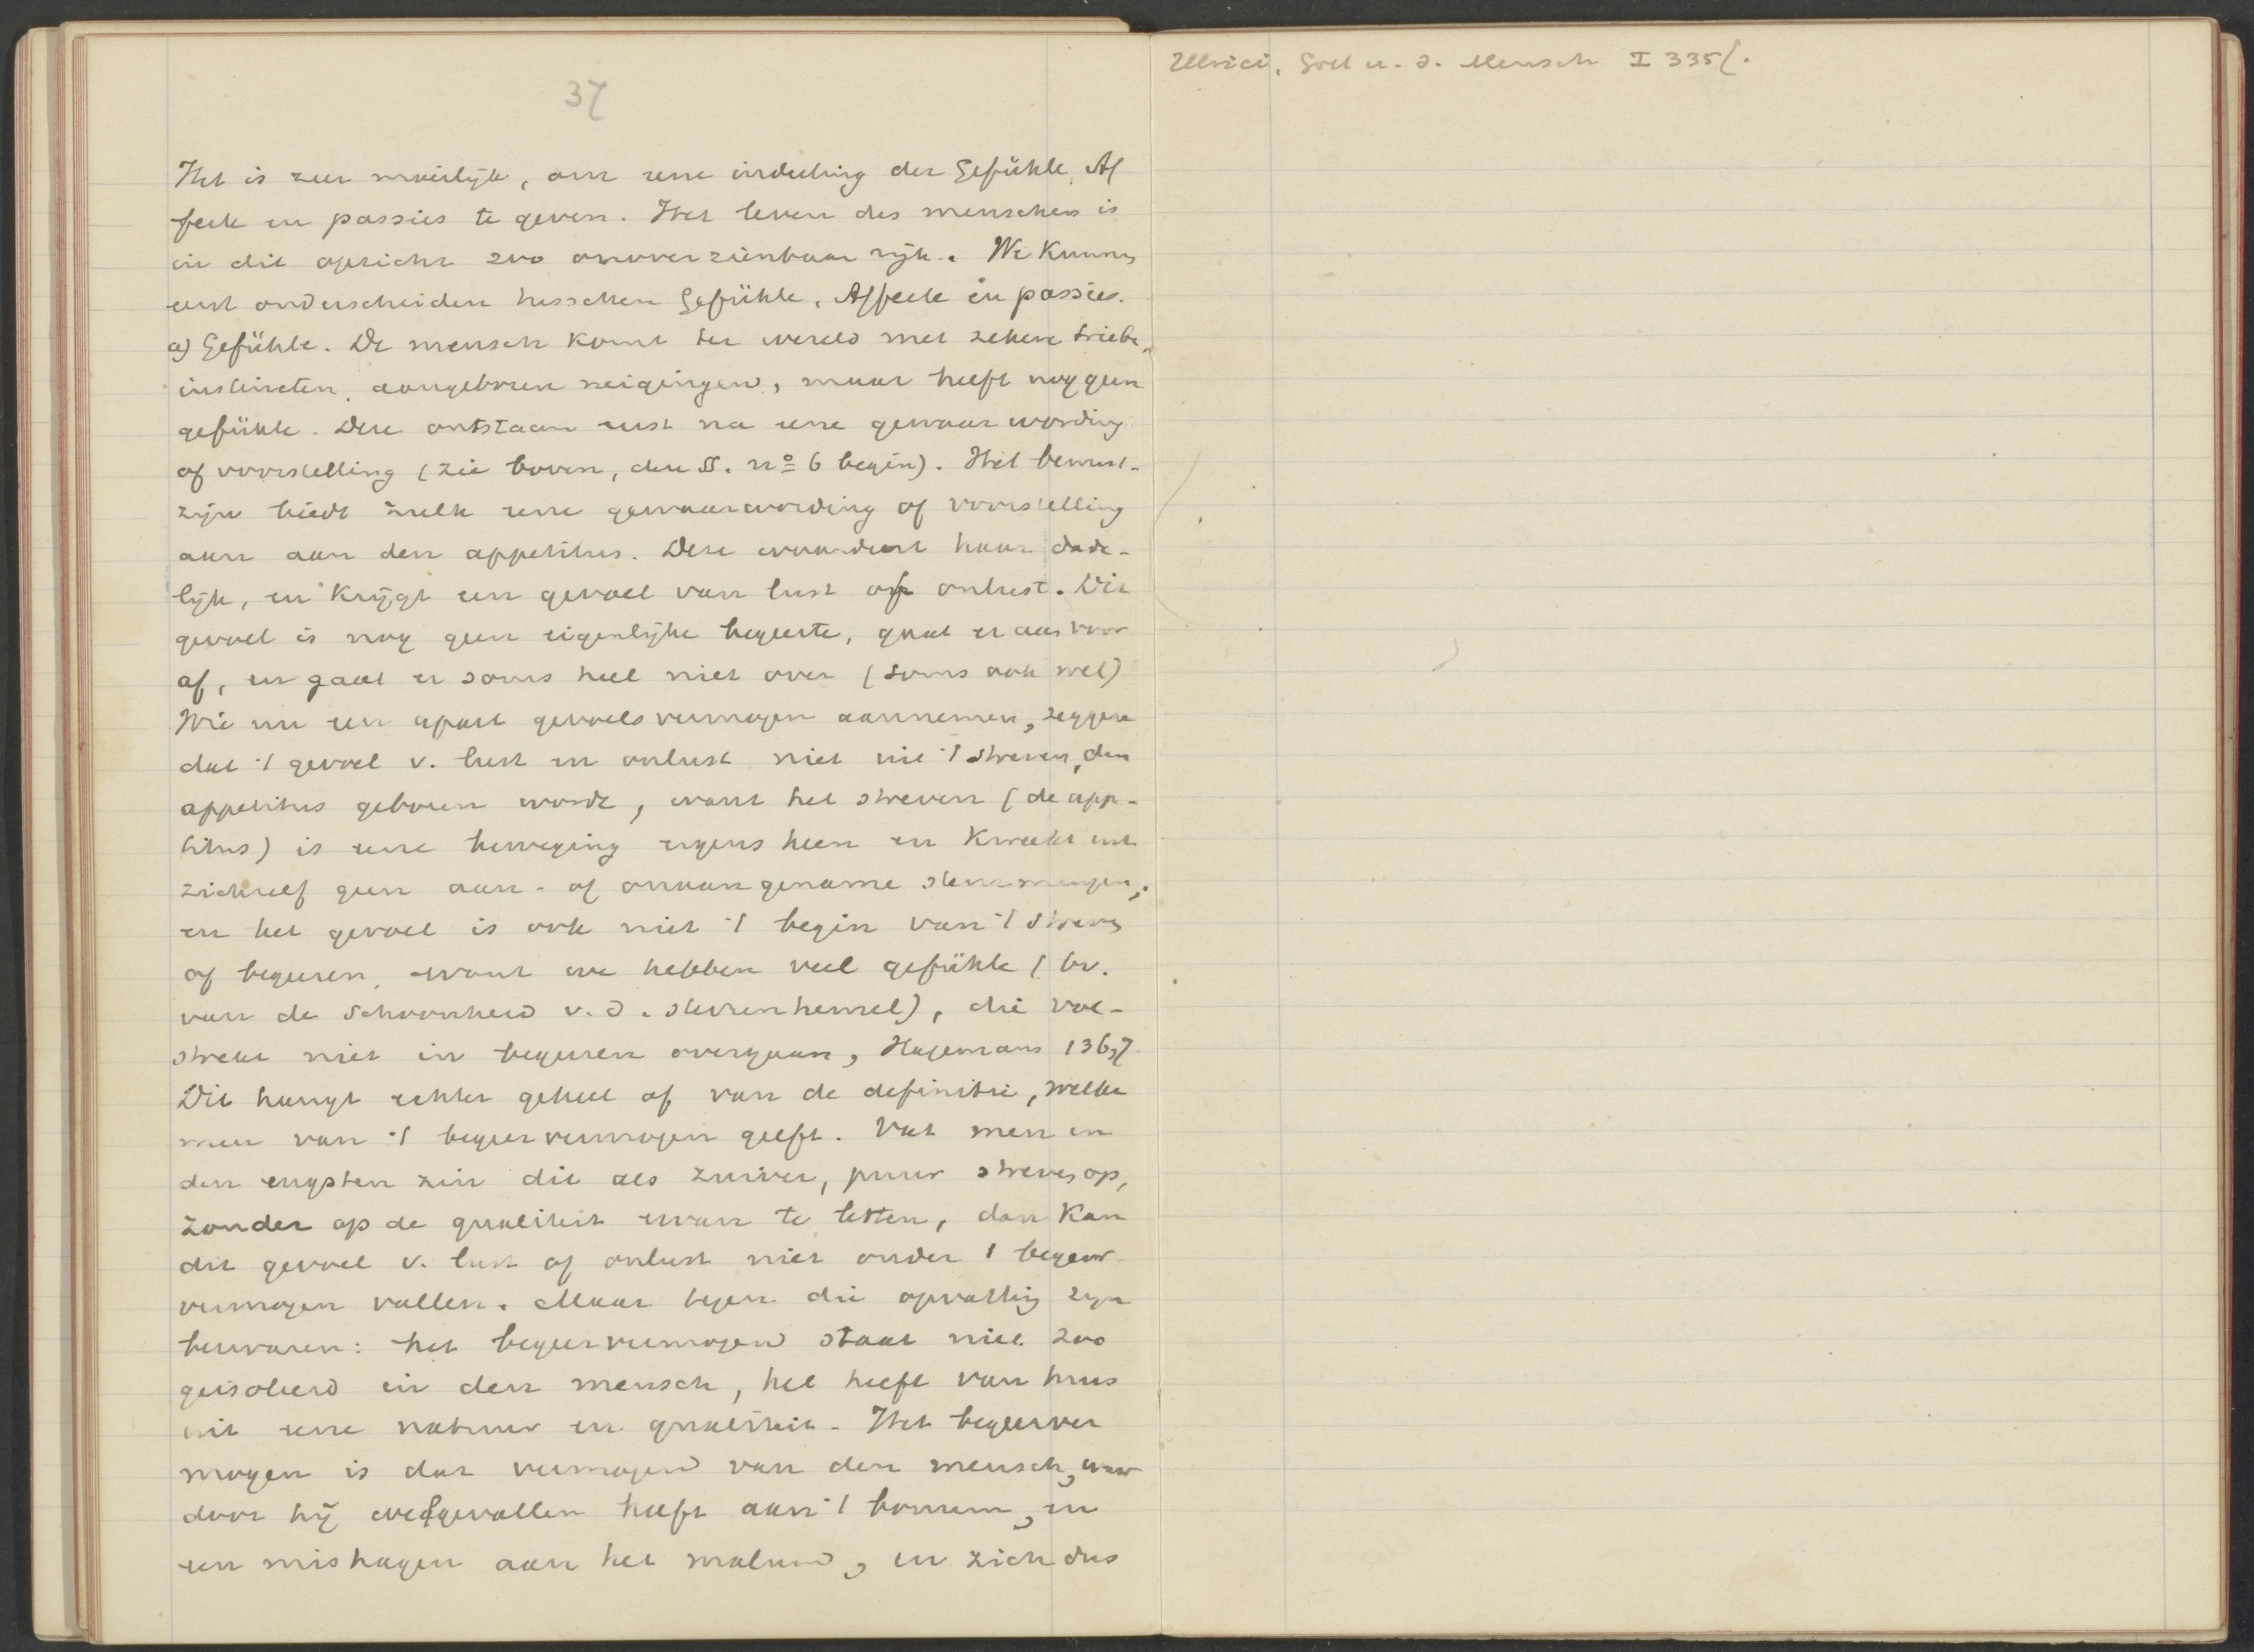 37
Het is zeer moeilijk, om eene indeeling der Gefühle, Af
fecte en passies te geven. Het leven des menschen is
in dit opzicht zoo onoverzienbaar rijk. We kunnen
eerst onderscheiden tusschen Gefühle, Affecte en passies.
a) Gefühle. De mensch komt ter wereld met zekere triebe,
instincten, aangeboren neigingen, maar heeft nog geen
gefühle. Deze ontstaan eerst na eene gewaarwording
of voorstelling (zie boven, deze §. nº 6 begin). Het bewust-
zijn biedt zulk eene gewaarwording of voorstelling
aan aan den appetitus. Deze waardeert haar dade-
lijk, en krijgt een gevoel van lust of onlust. Dit
gevoel is nog geen eigenlijke begeerte, gaat er aan voor
af, en gaat er soms heel niet over (soms ook wel)
Wie nu een apart gevoelsvermogen aannemen, zeggen
dat 't gevoel v. lust en onlust niet uit 't streven, den
appetitus geboren wordt, want het streven (de appe-
titus) is eene beweging ergens heen en kweekt uit
zichzelf geen aan- of onaangename stemmingen;
en het gevoel is ook niet 't begin van 't streven
of begeeren, want we hebben veel gefühle (bv.
van de schoonheid v. d. sterrenhemel), die vol-
strekt niet in begeeren overgaan, Hagemann 136,7.
Dit hangt echter geheel af van de definitie, welke
men van 't begeervermogen geeft. Vat men in
den engsten zin dit als zuiver, puur streven op,
zonder op de qualiteit ervan te letten, dan kan
dit gevoel v. lust of onlust niet onder 't begeer
vermogen vallen. Maar tegen die opvatting zijn
bezwaren: het begeervermogen staat niet zoo
geisoleerd in den mensch, het heeft van huis
uit eene natuur en qualiteit. Het begeerver
mogen is dat vermogen van den mensch, waar
door hij welgevallen heeft aan 't bonum, en
een mishagen aan het malum, en zich dus
Ulrici, Gott u. d. Mensch I 335f.